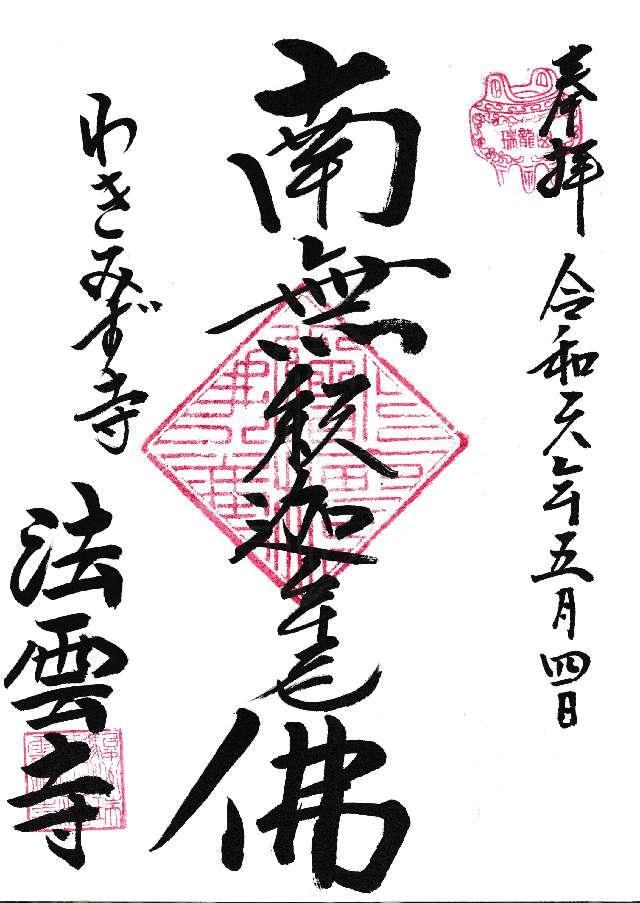 奉拝 令和元年五月四日
瑞龍山
南無釈迦牟尼佛
わきみず寺
法雲寺